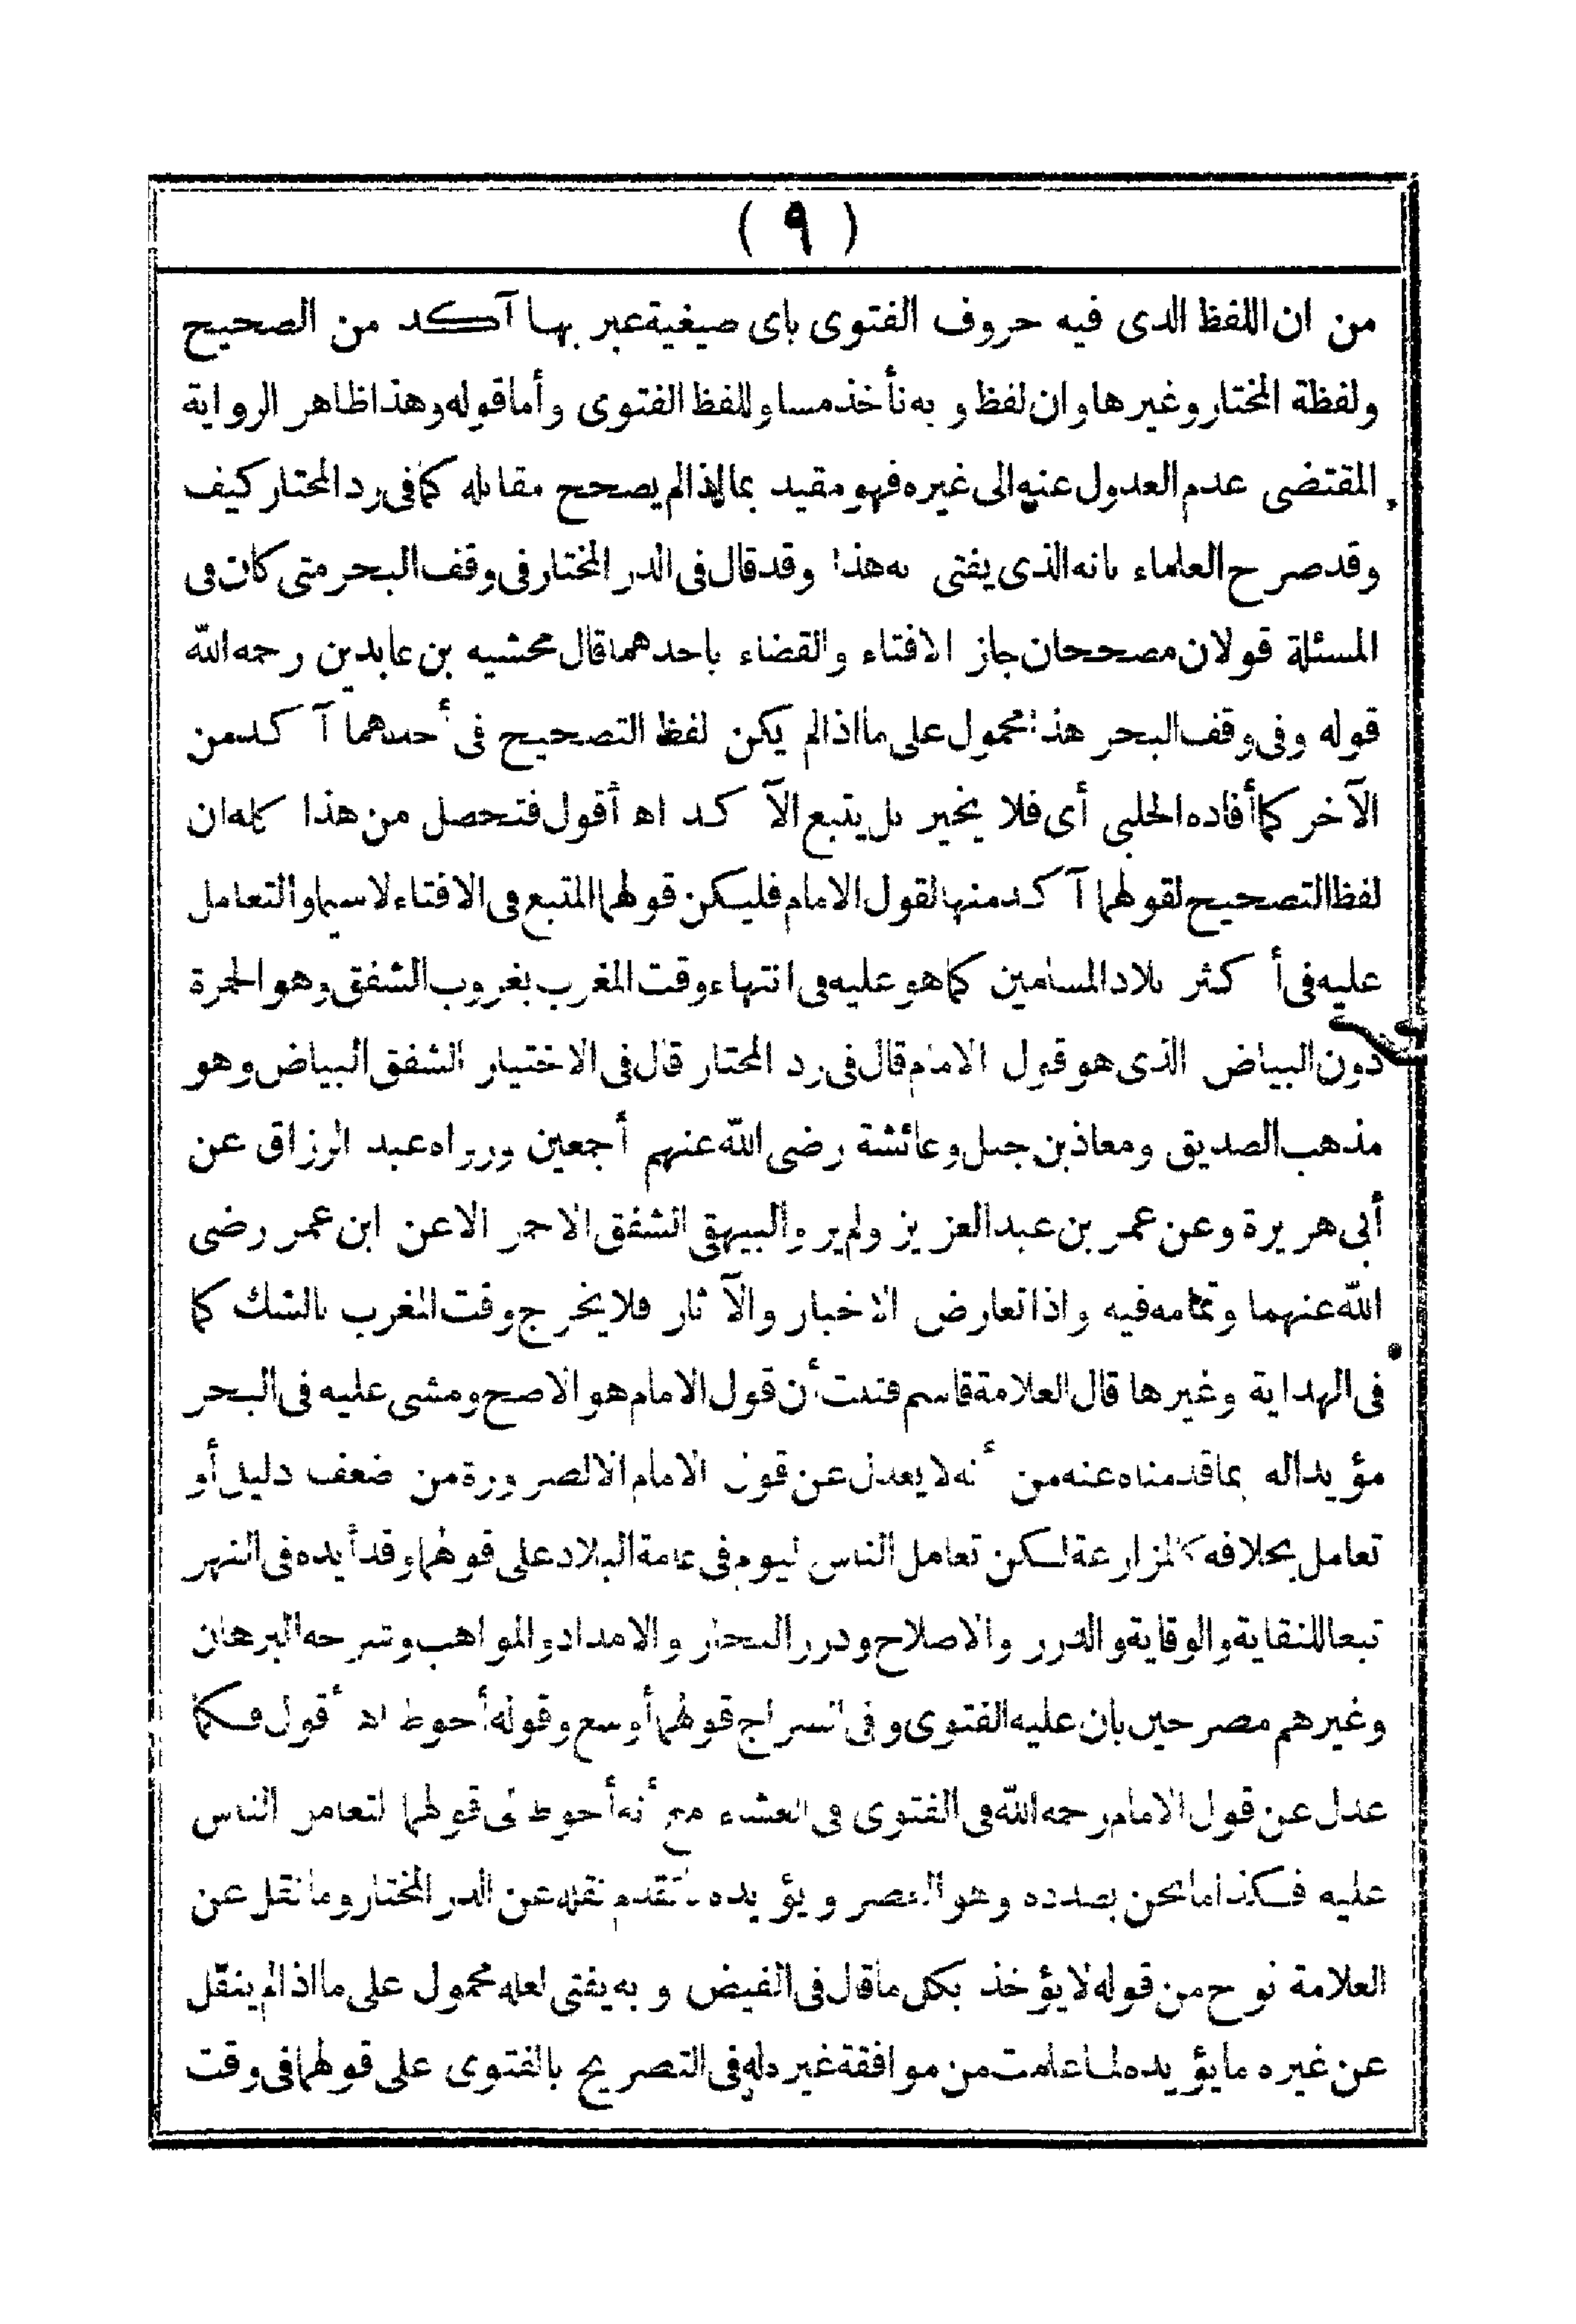 ( ٩ )
من ان اللفظ الذى فيه حروف الفتوى باى صيغية عبر بها آكد من الصحيح
ولفظة المختار وغيرها وان لفظ وبه نأخذ مساو للفظ الفتوى وأما قوله وهذا ظاهر الرواية
المقتضى عدم العدول عنه الى غيره فهو مقيد بما اذا لم يصحح مقابله كما فى رد المحتار كيف
وقد صرح العلماء بانه الذى يفتى به هذا وقد قال فى الدر المختار فى وقف البحر متى كان فى
المسئلة قولان مصححان جاز الافتاء والقضاء باحدهما قال محشيه بن عابدين رحمه الله
قوله وفى وقف البحر هذا محمول على ما اذا لم يكن لفظ التصحيح فى أحدهما آكد من
الآخر كما أفاده الحلبى أى فلا يخير بل يتبع الآكد اه أقول فتحصل من هذا كله ان
لفظ التصحيح لقولهما آكد منها لقول الامام فليكن قولهما المتبع فى الافتاء لا سيما والتعامل
عليه فى أكثر بلاد المسلمين كما هو عليه فى انتهاء وقت المغرب بغروب الشفق وهو الحمرة
دون البياض الذى هو قول الامام قال فى رد المحتار قال فى الاختيار الشفق البياض وهو
مذهب الصديق ومعاذ بن جبل وعائشة رضى الله عنهم أجمعين ورواه عبد الرزاق عن
أبى هريرة وعن عمر بن عبد العزيز ولم يرو البيهقى الشفق الاحمر الا عن ابن عمر رضى
الله عنهما وتمامه فيه واذا تعارض الاخبار والآثار فلا يخرج وقت المغرب بالشك كما
فى الهداية وغيرها قال العلامة قاسم فثبت أن قول الامام هو الاصح ومشى عليه فى البحر
مؤيدا له بما قدمناه عنه من أنه لا يعدل عن قول الامام الا لضرورة من ضعف دليل أو
تعامل بخلافه كالمزارعة لكن تعامل الناس اليوم فى عامة البلاد على قولهما وقد أيده فى النهر
تبعا للنقاية والوقاية والدرر والاصلاح ودرر البحار والامداد والمواهب وشرحه البرهان
وغيرهم مصرحين بان عليه الفتوى وفى السراج قولهما أوسع وقوله أحوط اه أقول فكما
عدل عن قول الامام رحمه الله فى الفتوى فى العشاء مع أنه أحوط الى قولهما لتعامل الناس
عليه فكذا ما نحن بصدده وهو العصر ويؤيده ما تقدم نقله عن الدر المختار وما نقل عن
العلامة نوح من قوله لا يؤخذ بكل ما قال فى الفيض وبه يفتى لعله محمول على ما اذا لم ينقل
عن غيره ما يؤيده لما علمت من موافقة غيره له فى التصريح بالفتوى على قولهما فى وقت